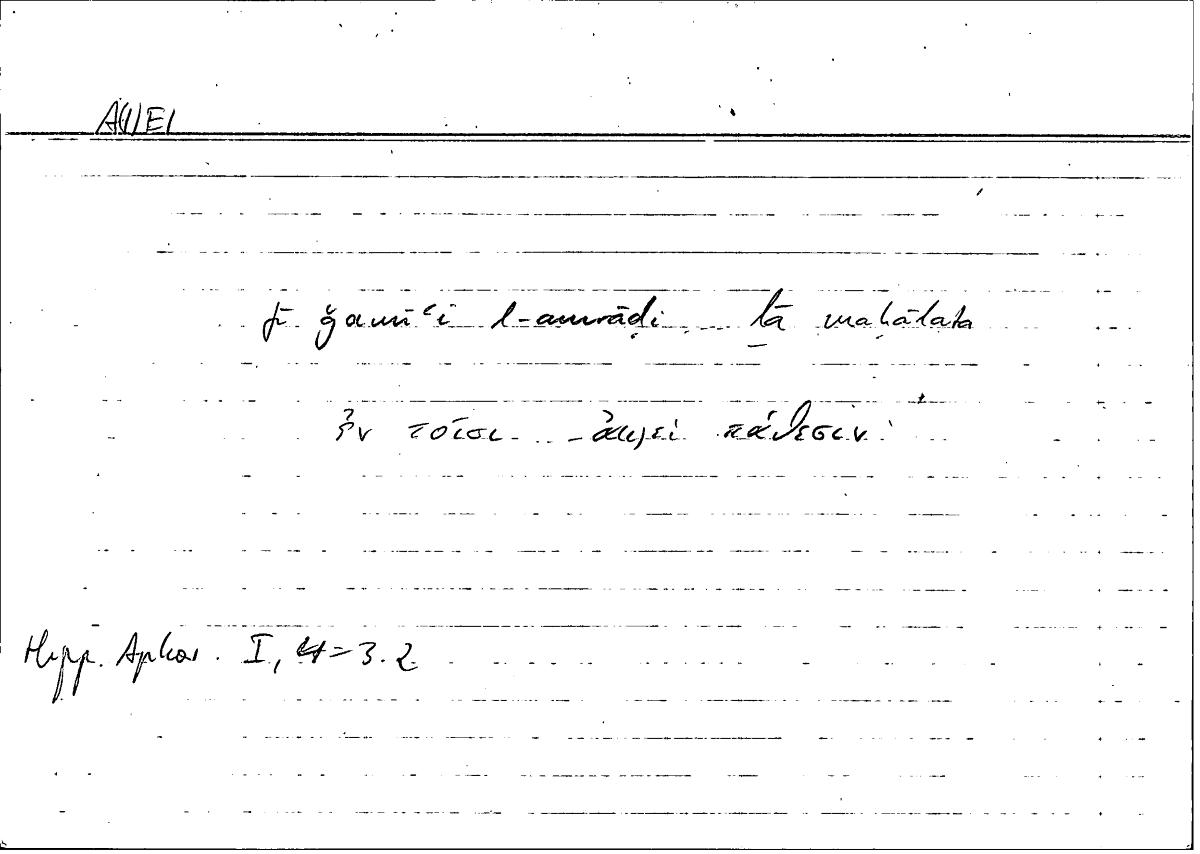 ΑΙΕΙ
fī ǧamīʿi l-amrāḍi lā maḥālata
ἐν τοῖσι - αἰεὶ πάθεσιν
Hipp. Aphor. I, 4=3.2